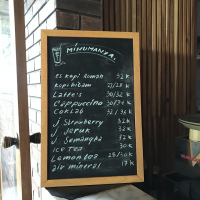 MINUMANZA.
es kopi Rumah 32 K
kopi hitam 27/28 K
Latte's 30/32 K
Cappuccino 30/32 K
Coklat 32/35 K
J Strawberry 32 K
J Jeruk 32 K
J Semangka 32 K
ICE TEA 30 K
Lemon tea 25/30 K
air mineral 17 K